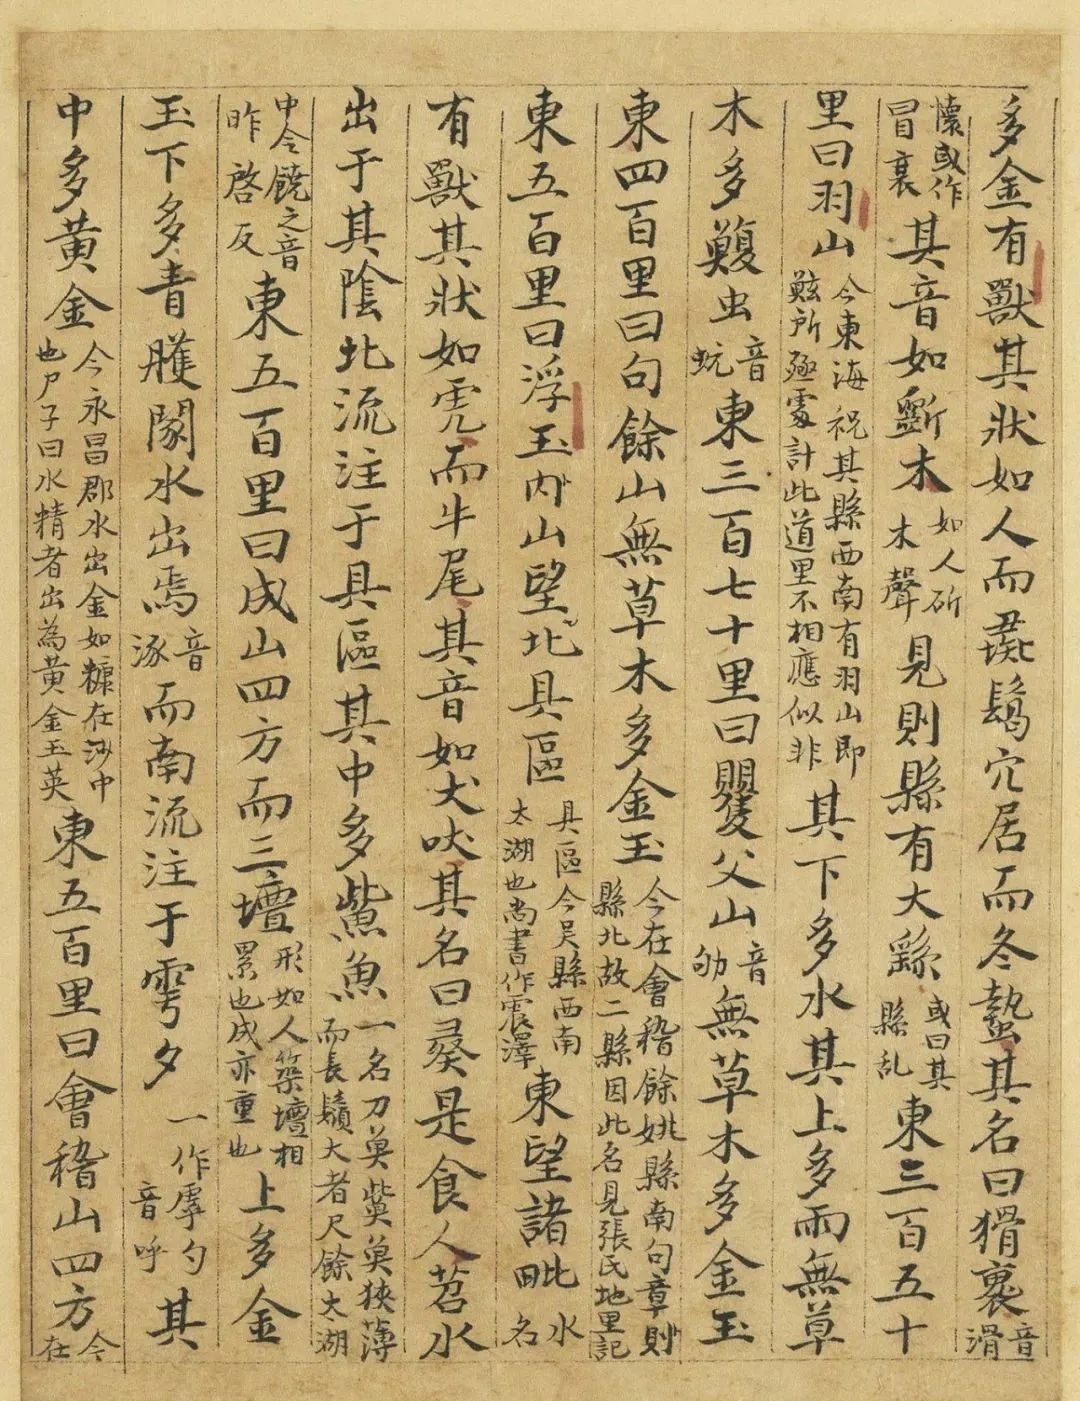 多金有獸其狀如人而彘鬣穴居而冬蟄其名曰猾褢音滑
懷或作冒裹其音如斲木如人斫木聲見則縣有大繇或曰其縣乱東三百五十
里曰羽山今東海祝其縣西南有羽山即鮌所殛處計此道里不相應似非其下多水其上多雨無草
木多蝮虫音蚖東三百七十里曰瞿父山音劬無草木多金玉
東四百里曰句餘山無草木多金玉今在會稽餘姚縣南句章則縣北故二縣因此名見張氏地里記
東五百里曰浮玉内山望北具區具區今吴縣西南太湖也尚書作震澤東望諸毗水名
有獸其狀如虎而牛尾其音如犬吠其名曰彘是食人苕水
出于其陰北流注于具區其中多鮆魚一名刀奠鮆奠狹薄而長鬚大者尺餘太湖
中今饒之音昨啓反東五百里曰成山四方而三壇形如人築壇相累也成亦重也上多金
玉下多青雘閡水出焉音涿而南流注于雩夕一作雩勺音呼其
中多黄金今永昌郡水出金如糠在沙中也尸子曰水精者出為黄金玉英東五百里曰會稽山四方今在